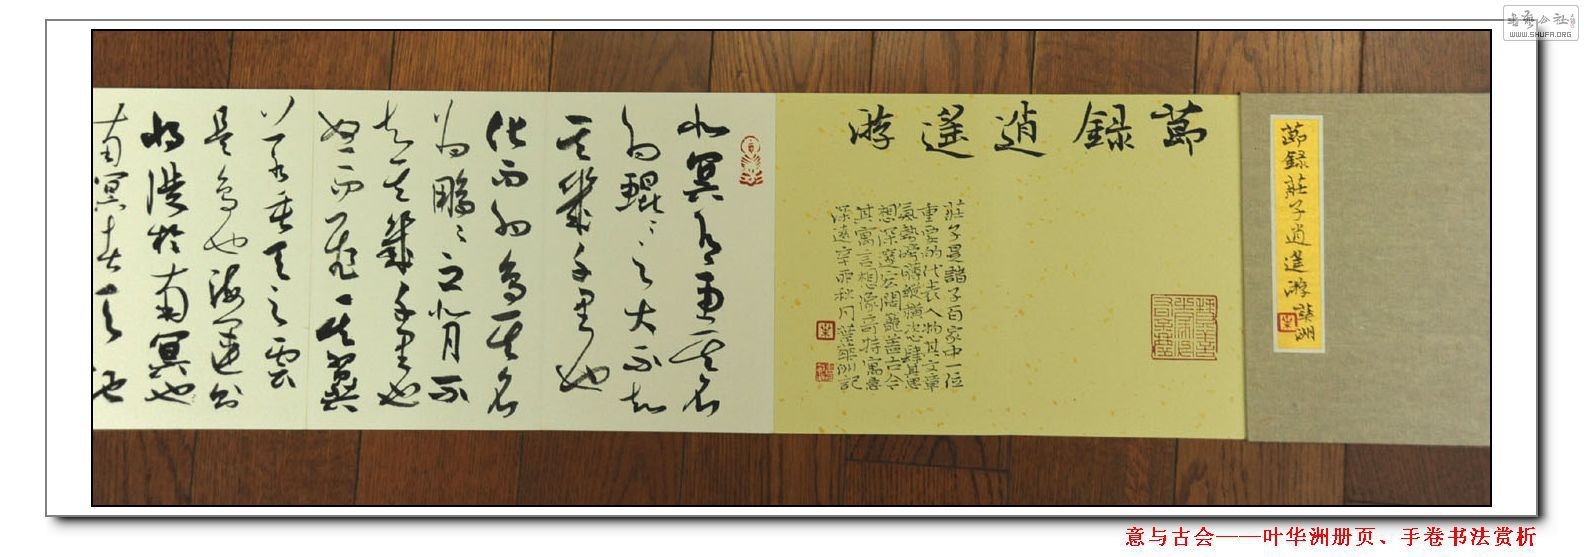 節録莊子逍遥游 葉洲
節録逍遥游
莊子是諸子百家中一位
重要的代表人物其文章
氣勢磅礴縱橫恣肆其思
想深邃宏闊籠蓋古今
其寓言想像奇特寓意
深遠辛卯秋月葉華洲記
北冥有魚其名
為鯤〻之大不知
其幾千里也
化而為鳥其名
為鵬〻之背不
知其幾千里也
怒而飛其翼
若垂天之雲
是鳥也海運則
將徙於南冥也
南冥者天池
意与古会——叶华洲册页、手卷书法赏析
WWW.SHUFA.ORG